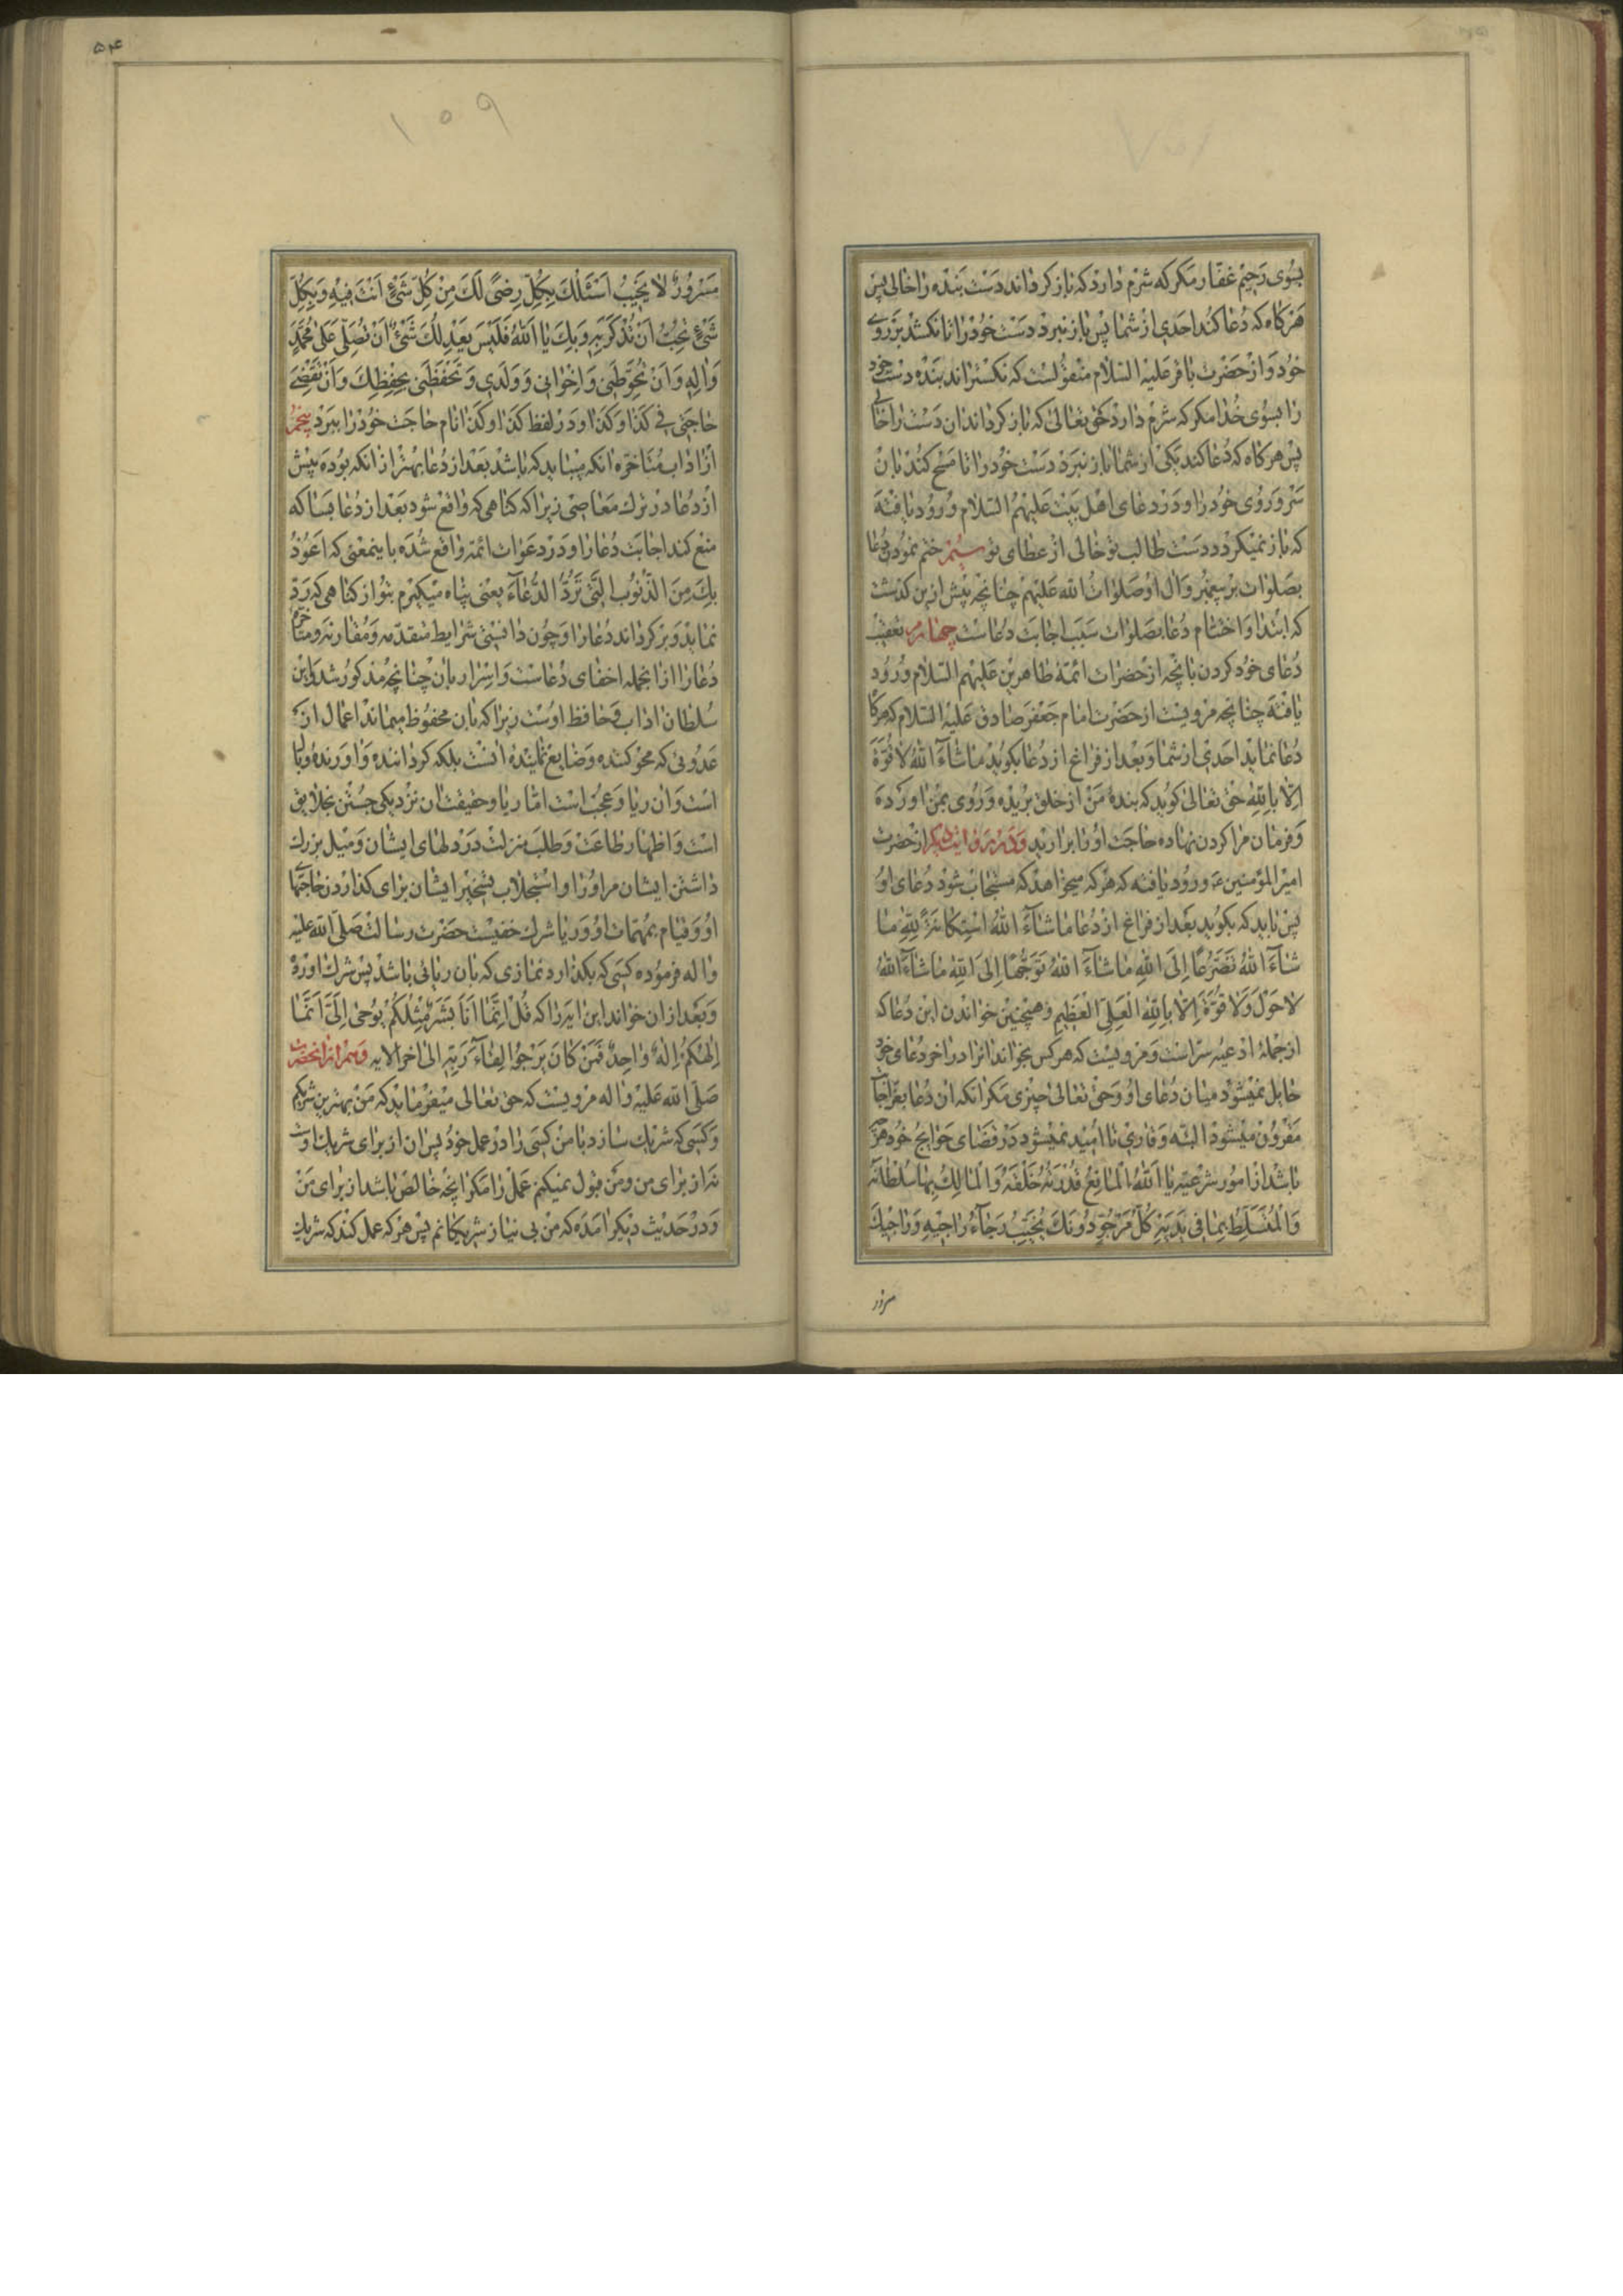 بسوی رحیم غفار مکر که شرم دارد که باز کرداند دست بنده را خالی پس
هرکاه که دعا کند احدی از شما پس باز نبرد دست خود را تا نکشد بر روی
خود و از حضرت باقر علیه السلام منقولست که نکستراند بنده دست خود
را بسوی خدا مکر که شرم دارد حق تعالی که باز کرداند ان دست را خالی
پس هرکاه که دعا کند یکی از شما باز نبرد دست خود را تا مسح کند بان
سر و روی خود را و در دعای اهل بیت علیهم السلام ورود یافته
که باز نمیکردد دست طالب تو خالی از عطای تو سیم ختم نمودن دعا
بصلوات بر پیغمبر وال او صلوات الله علیهم چنانچه پیش ازین کذشت
که ابتدا و اختتام دعا بصلوات سبب اجابت دعاست چهارم تعقیب
دعای خود کردن بانچه از حضرات ائمه طاهرین علیهم السلام ورود
یافته چنانچه مرویست از حضرت امام جعفر صادق علیه السلام که هرکا
دعا نماید احدی از شما و بعد از فراغ از دعا بکوید ما شآء الله لا قوة
الا بالله حق تعالی کوید که بنده من از خلق بریده و روی بمن اورده
و فرمان مرا کردن نهاده حاجت او را برارید و در روایت دیکر از حضرت
امیر المؤمنین ع ورود یافته که هرکه میخواهد که مستجاب شود دعای او
پس باید که بکوید بعد از فراغ از دعا ما شآء الله استکانة لله ما
شآء الله تضرعا الی الله ما شآء الله توجها الی الله ما شآء الله
لا حول ولا قوة الا بالله العلی العظیم و همچنین خواندن این دعا که
از جمله ادعیه سر است و مرویست که هرکس بخواند انرا در اخر دعای خود
حایل نمیشود میان دعای او و حق تعالی چیزی مکر انکه ان دعا بعز اجابت
مقرون میشود البته و قاری نا امید نمیشود در قضای حوایج خود هرچه
باشد از امور شرعیه یا الله المانع قدرته خلقه والمالک بها سلطانه
والمتسلط بما فی یدیه کل مرجو دونک یخیب رجآء راجیه وراجیک
مسرور
۵۴
۱۰۹
مسرور لا یخیب اسئلک بکل رضی لک من کل شیء انت فیه وبکل
شیء تحب ان تذکر به وبک یا الله فلیس یعدلک شیء ان تصلی علی محمد
واله وان تحوطنی واخوانی وولدی وتحفظنی بحفظک وان تقضی
حاجتی فی کذا وکذا و در لفظ کذا و کذا نام حاجت خود را ببرد پنجم
از اداب متاخره انکه میباید که باشد بعد از دعا بهتر از انکه بوده پیش
از دعا در ترک معاصی زیرا که کناهی که واقع شود بعد از دعا بسا که
منع کند اجابت دعا را و در دعوات ائمه واقع شده باینمعنی که اعوذ
بک من الذنوب التی ترد الدعآء یعنی پناه میکیرم بتو از کناهی که رد
نماید و برکرداند دعا را و چون دانستی شرایط متقدمه و مقارنه و متاخره
دعا را از انجمله اخفای دعاست و اسرار بان چنانچه مذکور شد و این
سلطان اداب و حافظ اوست زیرا که بان محفوظ میماند اعمال از
عدوئی که محو کننده و ضایع نماینده انست بلکه کرداننده و اورنده وبال
است و ان ریا و عجب است اما ریا و حقیقت ان نزدیکی جستن بخلایق
است و اظهار طاعت و طلب منزلت در دلهای ایشان و میل بزرک
داشتن ایشان مر او را و استجلاب تسخیر ایشان برای کذاردن حاجتهای
او و قیام بمهمات او و ریا شرک خفیست حضرت رسالت صلی الله علیه
واله فرموده کسی که بکذارد نمازی که بان ریائی باشد پس شرک اورده
و بعد از ان خواند این ایه را که قل انما انا بشر مثلکم یوحی الی انما
الهکم اله واحد فمن کان یرجوا لقآء ربه الی اخر الایه و هم از انحضرت
صلی الله علیه واله مرویست که حق تعالی میفرماید که من بهترین شریکم
و کسی که شریک سازد با من کسی را در عمل خود پس ان از برای شریک اوست
نه از برای من و من قبول نمیکنم عمل را مکر انچه خالص باشد از برای من
و در حدیث دیکر امده که من بی نیازترین شریکانم پس هرکه عمل کند که شریک